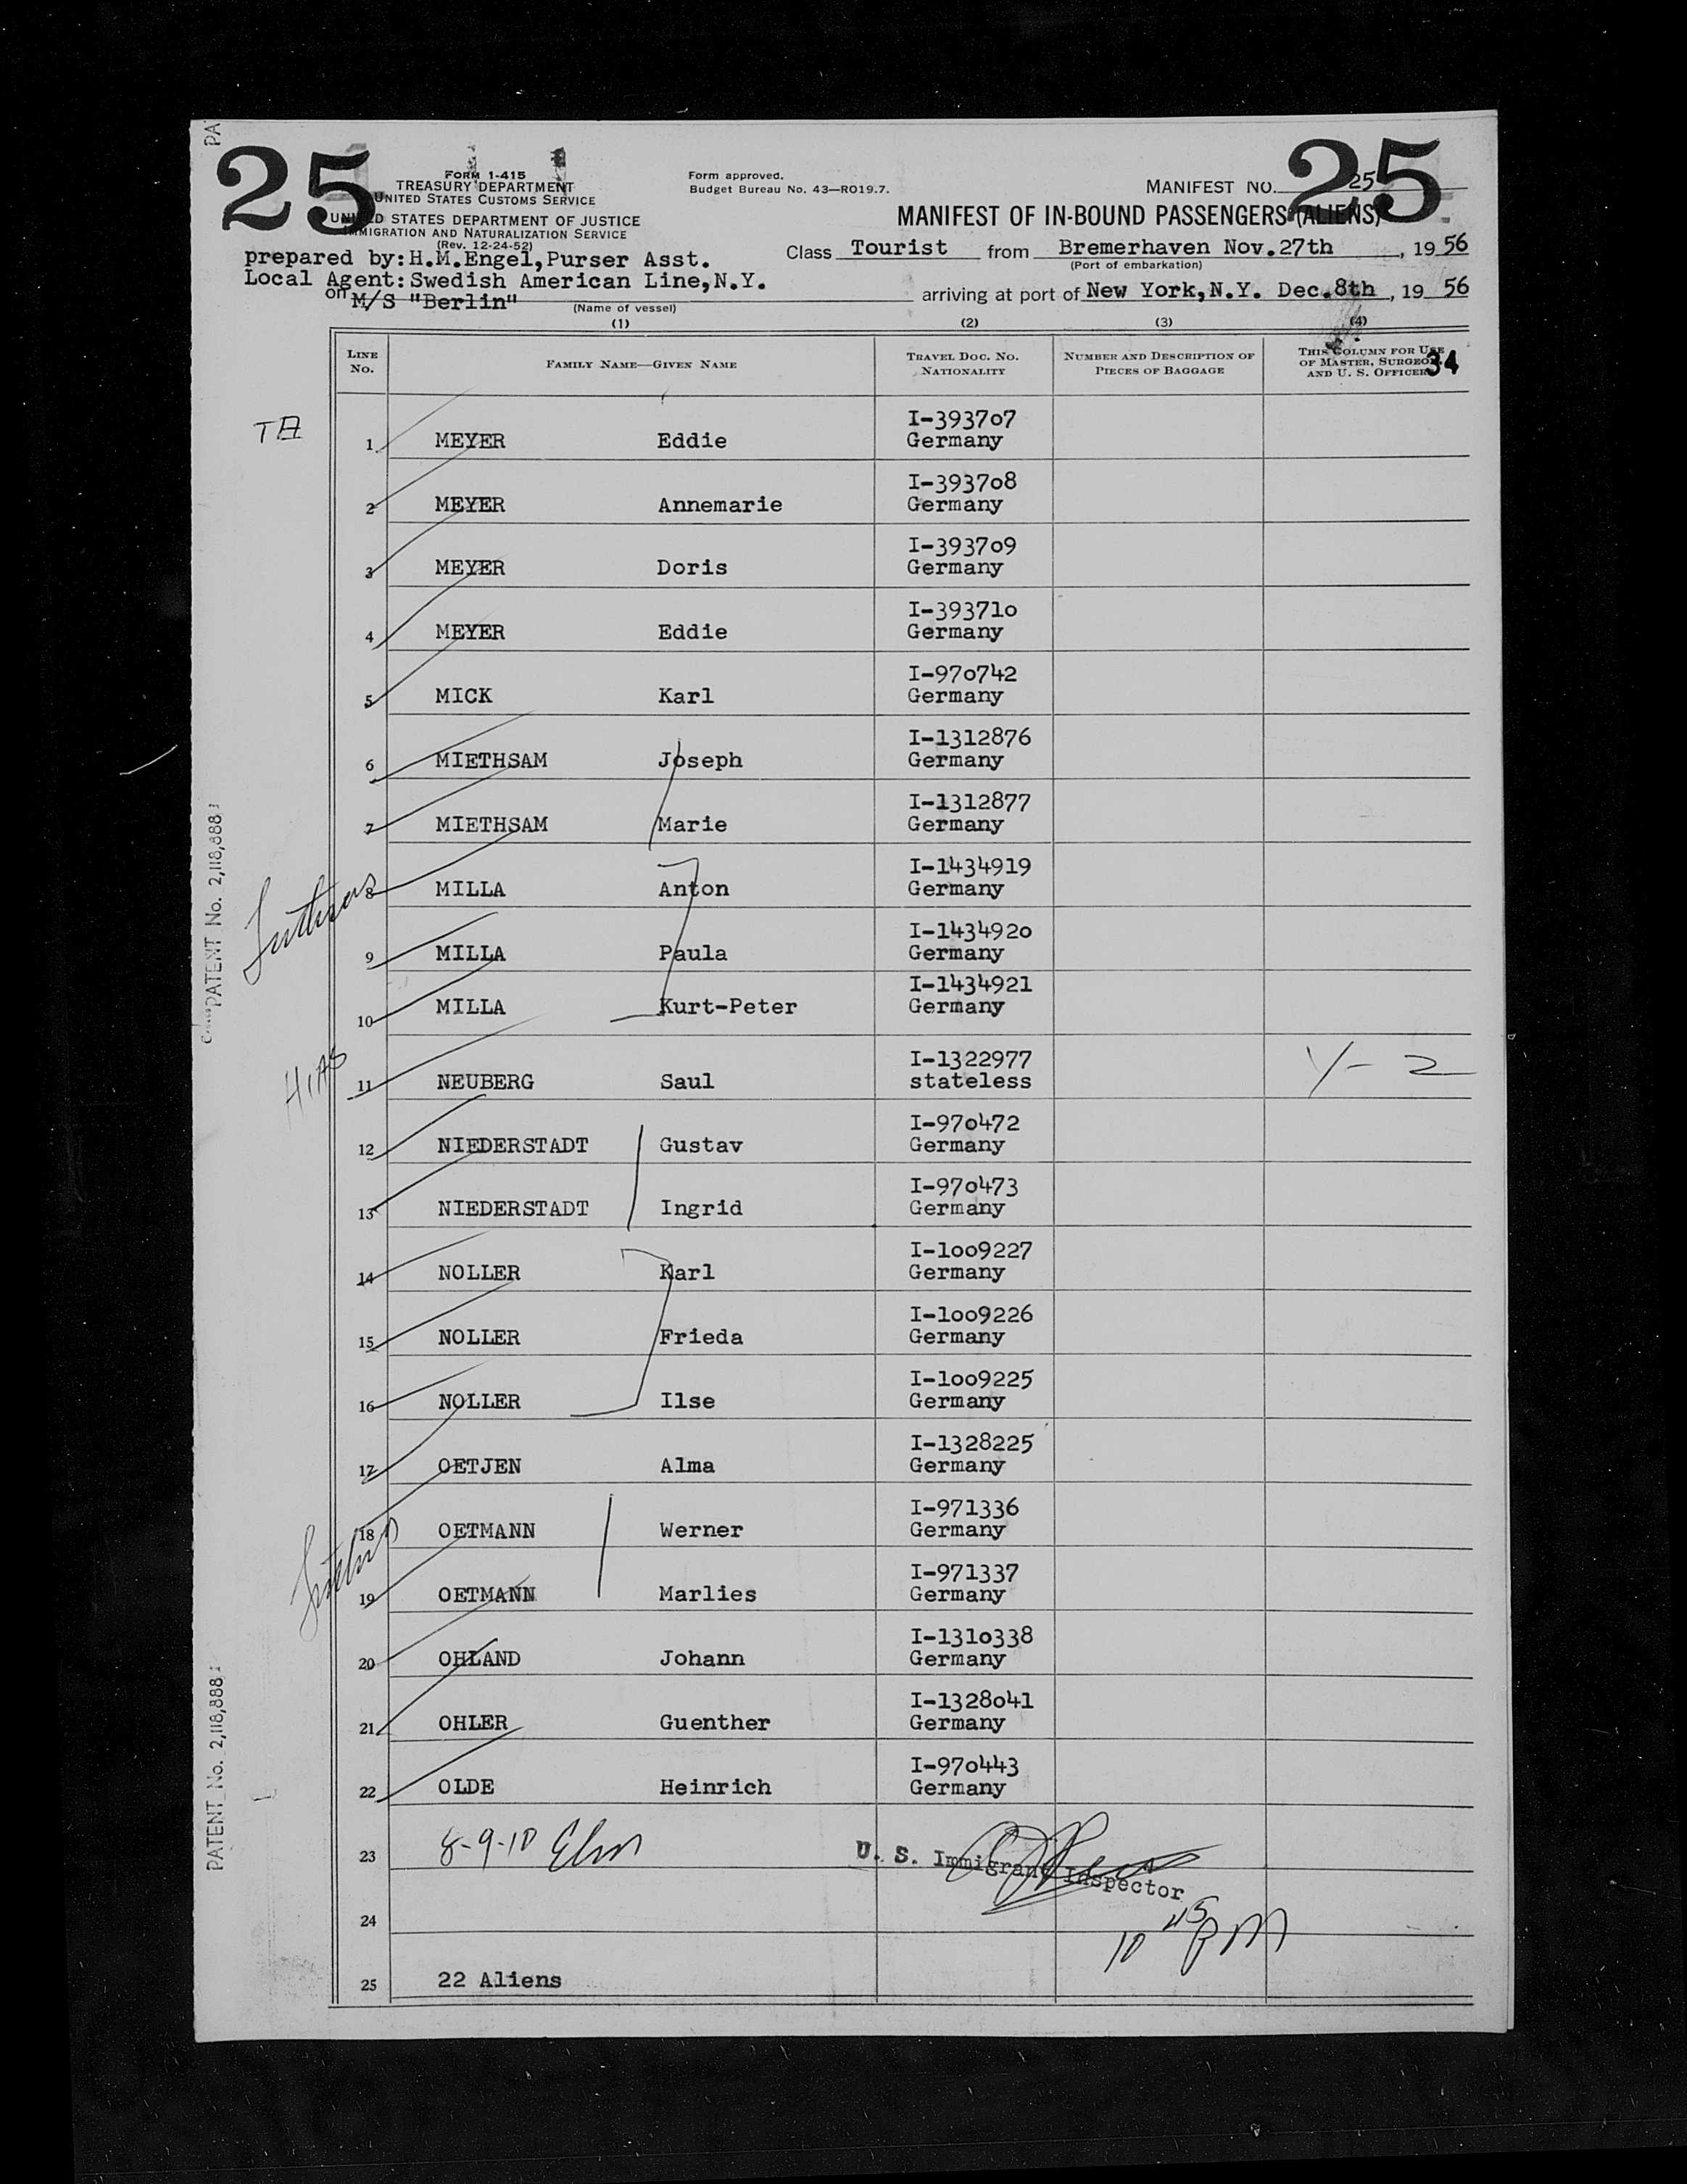 25
25
FORM I-415
TREASURY DEPARTMENT
UNITED STATES CUSTOMS SERVICE
UNITED STATES DEPARTMENT OF JUSTICE
IMMIGRATION AND NATURALIZATION SERVICE
(Rev. 12-24-52)
Form approved.
Budget Bureau No. 43—RO19.7.
MANIFEST NO. 25
MANIFEST OF IN-BOUND PASSENGERS (ALIENS)
prepared by:H.M.Engel,Purser Asst.
Class Tourist from Bremerhaven Nov.27th, 1956
(Port of embarkation)
Local Agent:Swedish American Line,N.Y.
on M/S "Berlin"
(Name of vessel)
arriving at port of New York,N.Y. Dec.8th, 19 56
(1) (2) (3) (4)
LINE NO. FAMILY NAME—GIVEN NAME TRAVEL DOC. NO. NATIONALITY NUMBER AND DESCRIPTION OF PIECES OF BAGGAGE THIS COLUMN FOR USE OF MASTER, SURGEON, AND U. S. OFFICERS
34
I-393707
1 MEYER Eddie Germany
I-393708
2 MEYER Annemarie Germany
I-393709
3 MEYER Doris Germany
I-393710
4 MEYER Eddie Germany
I-970742
5 MICK Karl Germany
I-1312876
6 MIETHSAM Joseph Germany
I-1312877
7 MIETHSAM Marie Germany
I-1434919
8 MILLA Anton Germany
I-1434920
9 MILLA Paula Germany
I-1434921
10 MILLA Kurt-Peter Germany
HIAS
I-1322977
11 NEUBERG Saul stateless V-2
I-970472
12 NIEDERSTADT Gustav Germany
I-970473
13 NIEDERSTADT Ingrid Germany
I-1009227
14 NOLLER Karl Germany
I-1009226
15 NOLLER Frieda Germany
I-1009225
16 NOLLER Ilse Germany
I-1328225
17 OETJEN Alma Germany
I-971336
18 OETMANN Werner Germany
I-971337
19 OETMANN Marlies Germany
I-1310338
20 OHLAND Johann Germany
I-1328041
21 OHLER Guenther Germany
I-970443
22 OLDE Heinrich Germany
23 8-9-10 U. S. Immigrant Inspector
24 10 45 PM
25 22 Aliens
PATENT No. 2,118,888
PATENT No. 2,118,888